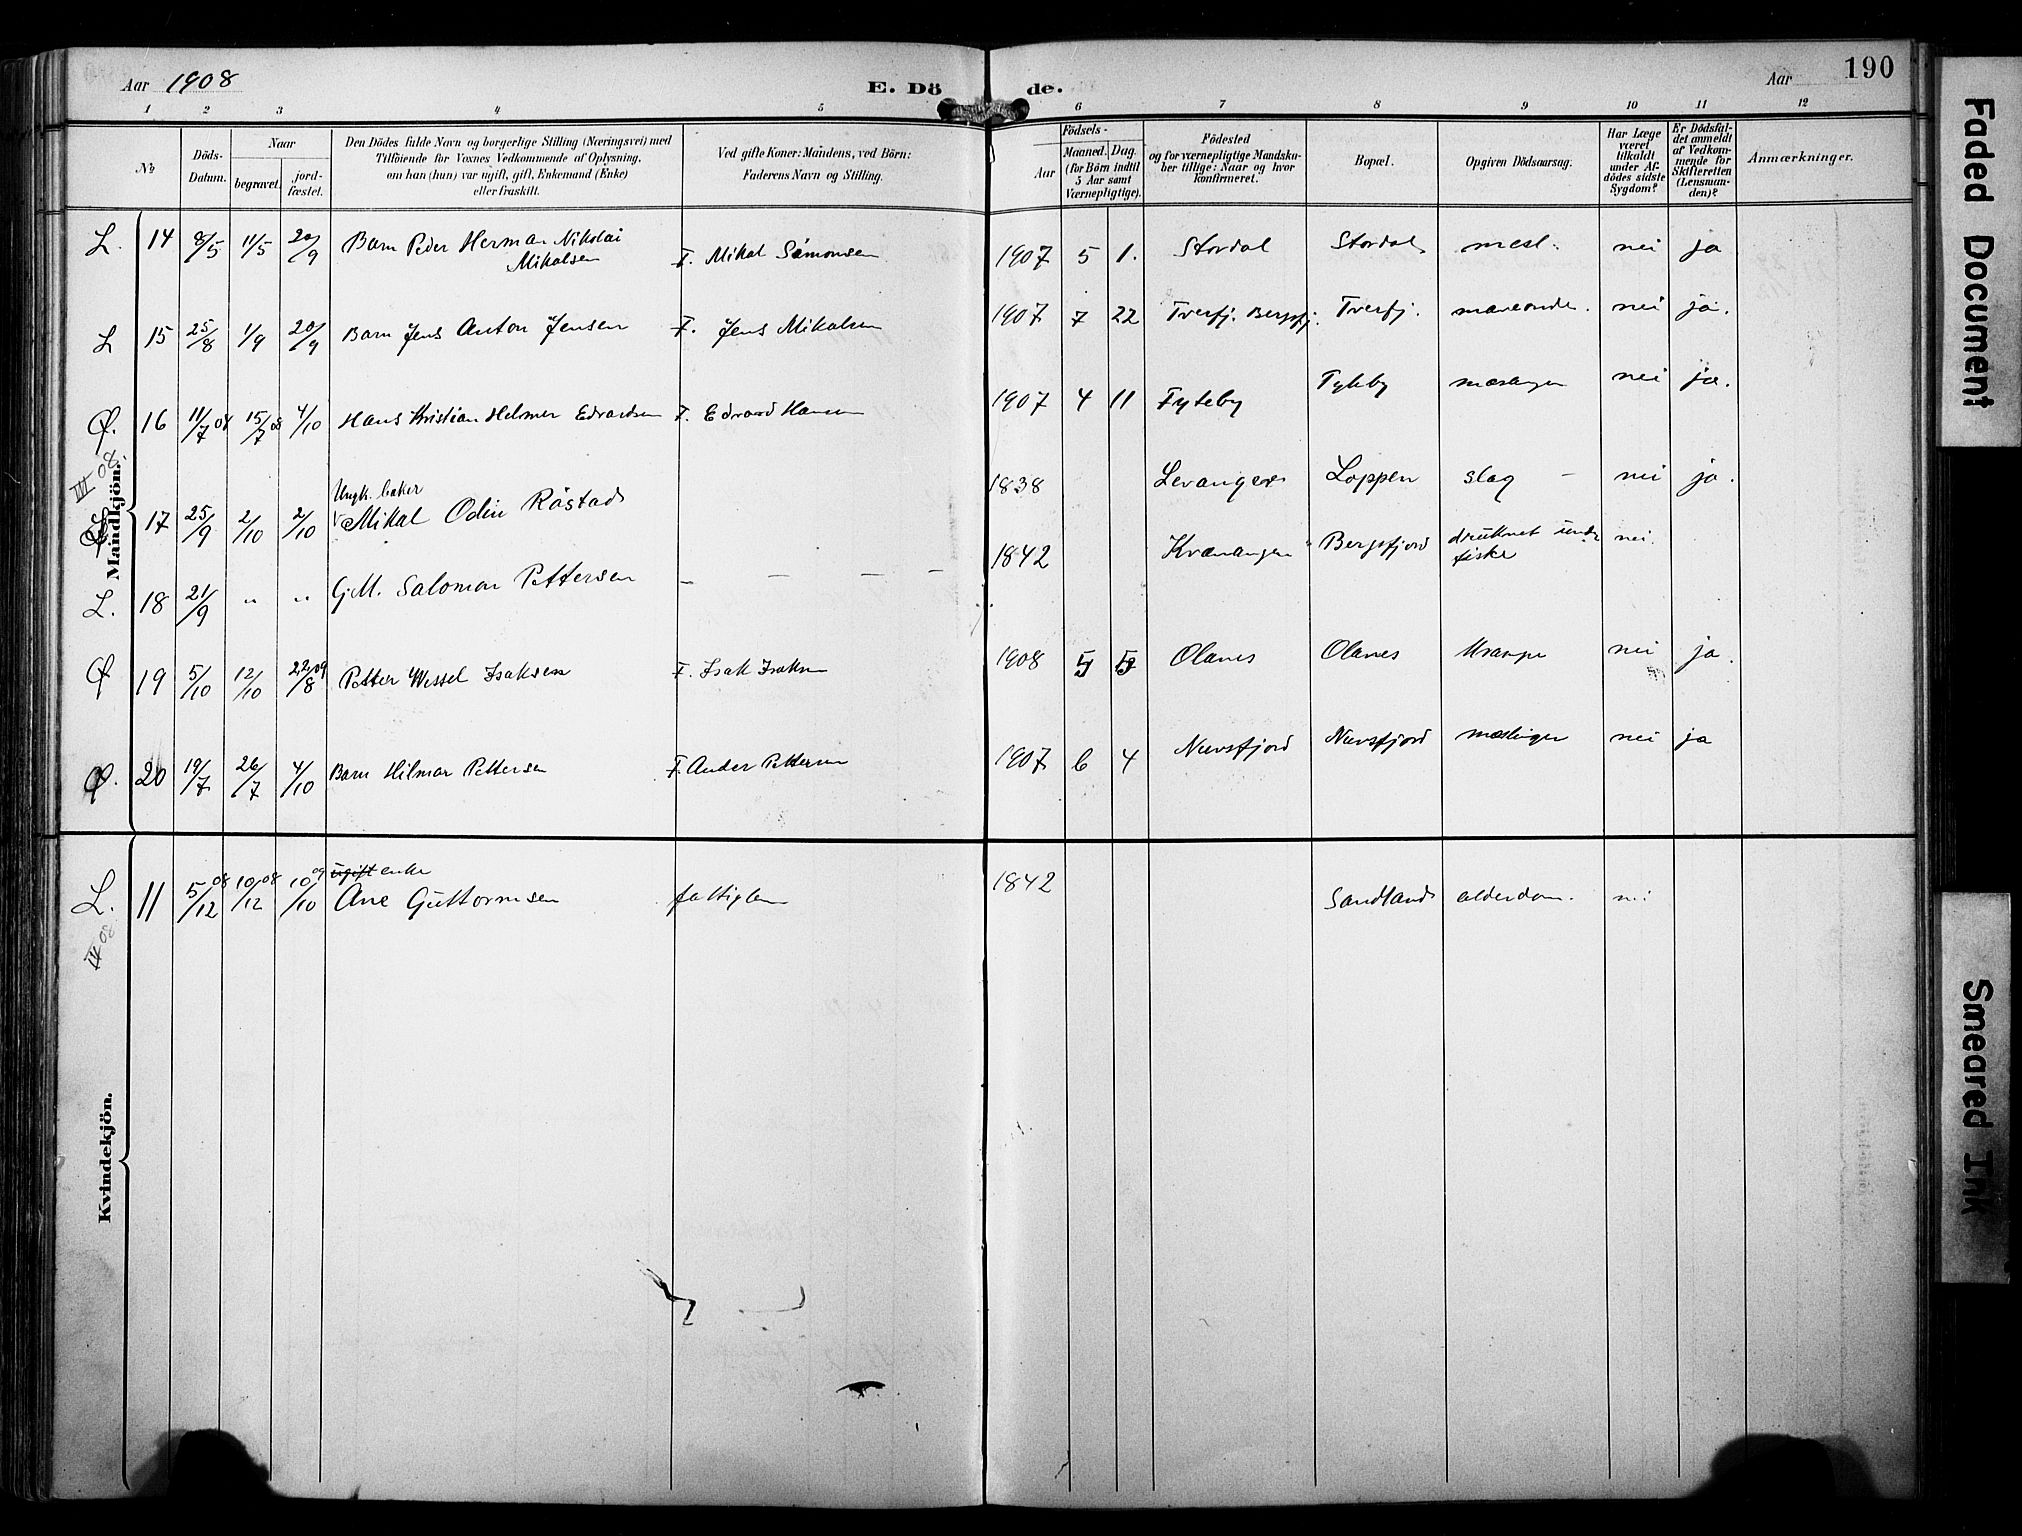 Aar 1908 E. Döde. Aar 190
1 2 3 4 5 6 7 8 9 10 11 12
No
Döds-Datum.
Naar
begravet.
jord-fæstet.
Den Dödes fulde Navn og borgerlige Stilling (Næringsvei) med
Tilföiende for Voxnes Vedkommende af Oplysning,
om han (hun) var ugift, gift, Enkemand (Enke)
eller fraskilt.
Ved gifte Koner: Mandens, ved Börn:
Faderens Navn og Stilling.
Födsels-
Aar
Maaned. Dag.
(for Börn indtil
5 Aar samt
Værnepligtige).
Födested
og for værnepligtige Mandsku-
ber tillige: Naar og hvor
konfirmeret.
Bopæl.
Opgiven Dödsaarsag.
Har Læge
været
tilkaldt
under Af-
dödes sidste
Sygdom?
Er Dödsfal-
det anmeldt
af Vedkom-
mende for
Skifteretten
(Lensman-
den)?
Anmærkninger.
Mandkjön.
L. 14 8/5 11/5 20/9 Barn Peder Herman Nikolai
Mikalsen F. Mikal Simonsen 1907 5 1. Stordal Stordal mesl. nei ja
L 15 25/8 1/9 20/9 Barn Jens Anton Jensen F. Jens Mikalsen 1907 7 22 Tverfj. Bergsfj. Tverfj. maveonde. nei ja.
Ø. 16 11/7 08 15/7 08 4/10 Hans Kristian Helmer Edvardsen F. Edvard Hansen 1907 4 11 Fyteby Fyteby mæslinger nei ja.
III 08.
Ungk. baker
17 25/9 2/10 2/10 Mikal Odin Råstad 1838 Levanger Loppen slag – nei ja.
L. 18 21/9 " " G.M. Salomon Pettersen – – – – 1842 Kvænangen Bergsfjord druknet under
fiske nei.
Ø 19 5/10 12/10 22/8 09 Petter Wessel Isaksen F. Isak Isaksen 1908 5 Olanes Olanes Krampe nei ja.
Ø. 20 19/7 26/7 4/10 Barn Hilmar Pettersen F. Ander Pettersen 1907 6 4 Nuvsfjord Nuvsfjord mæslinger nei ja
Kvindekjön.
ugift enke
L. 11 5/12 08 10/12 08 10/10 09 Ane Guttormsen fattiglem 1842 Sandland alderdom. nei
IV 08
Faded Document
Smeared Ink